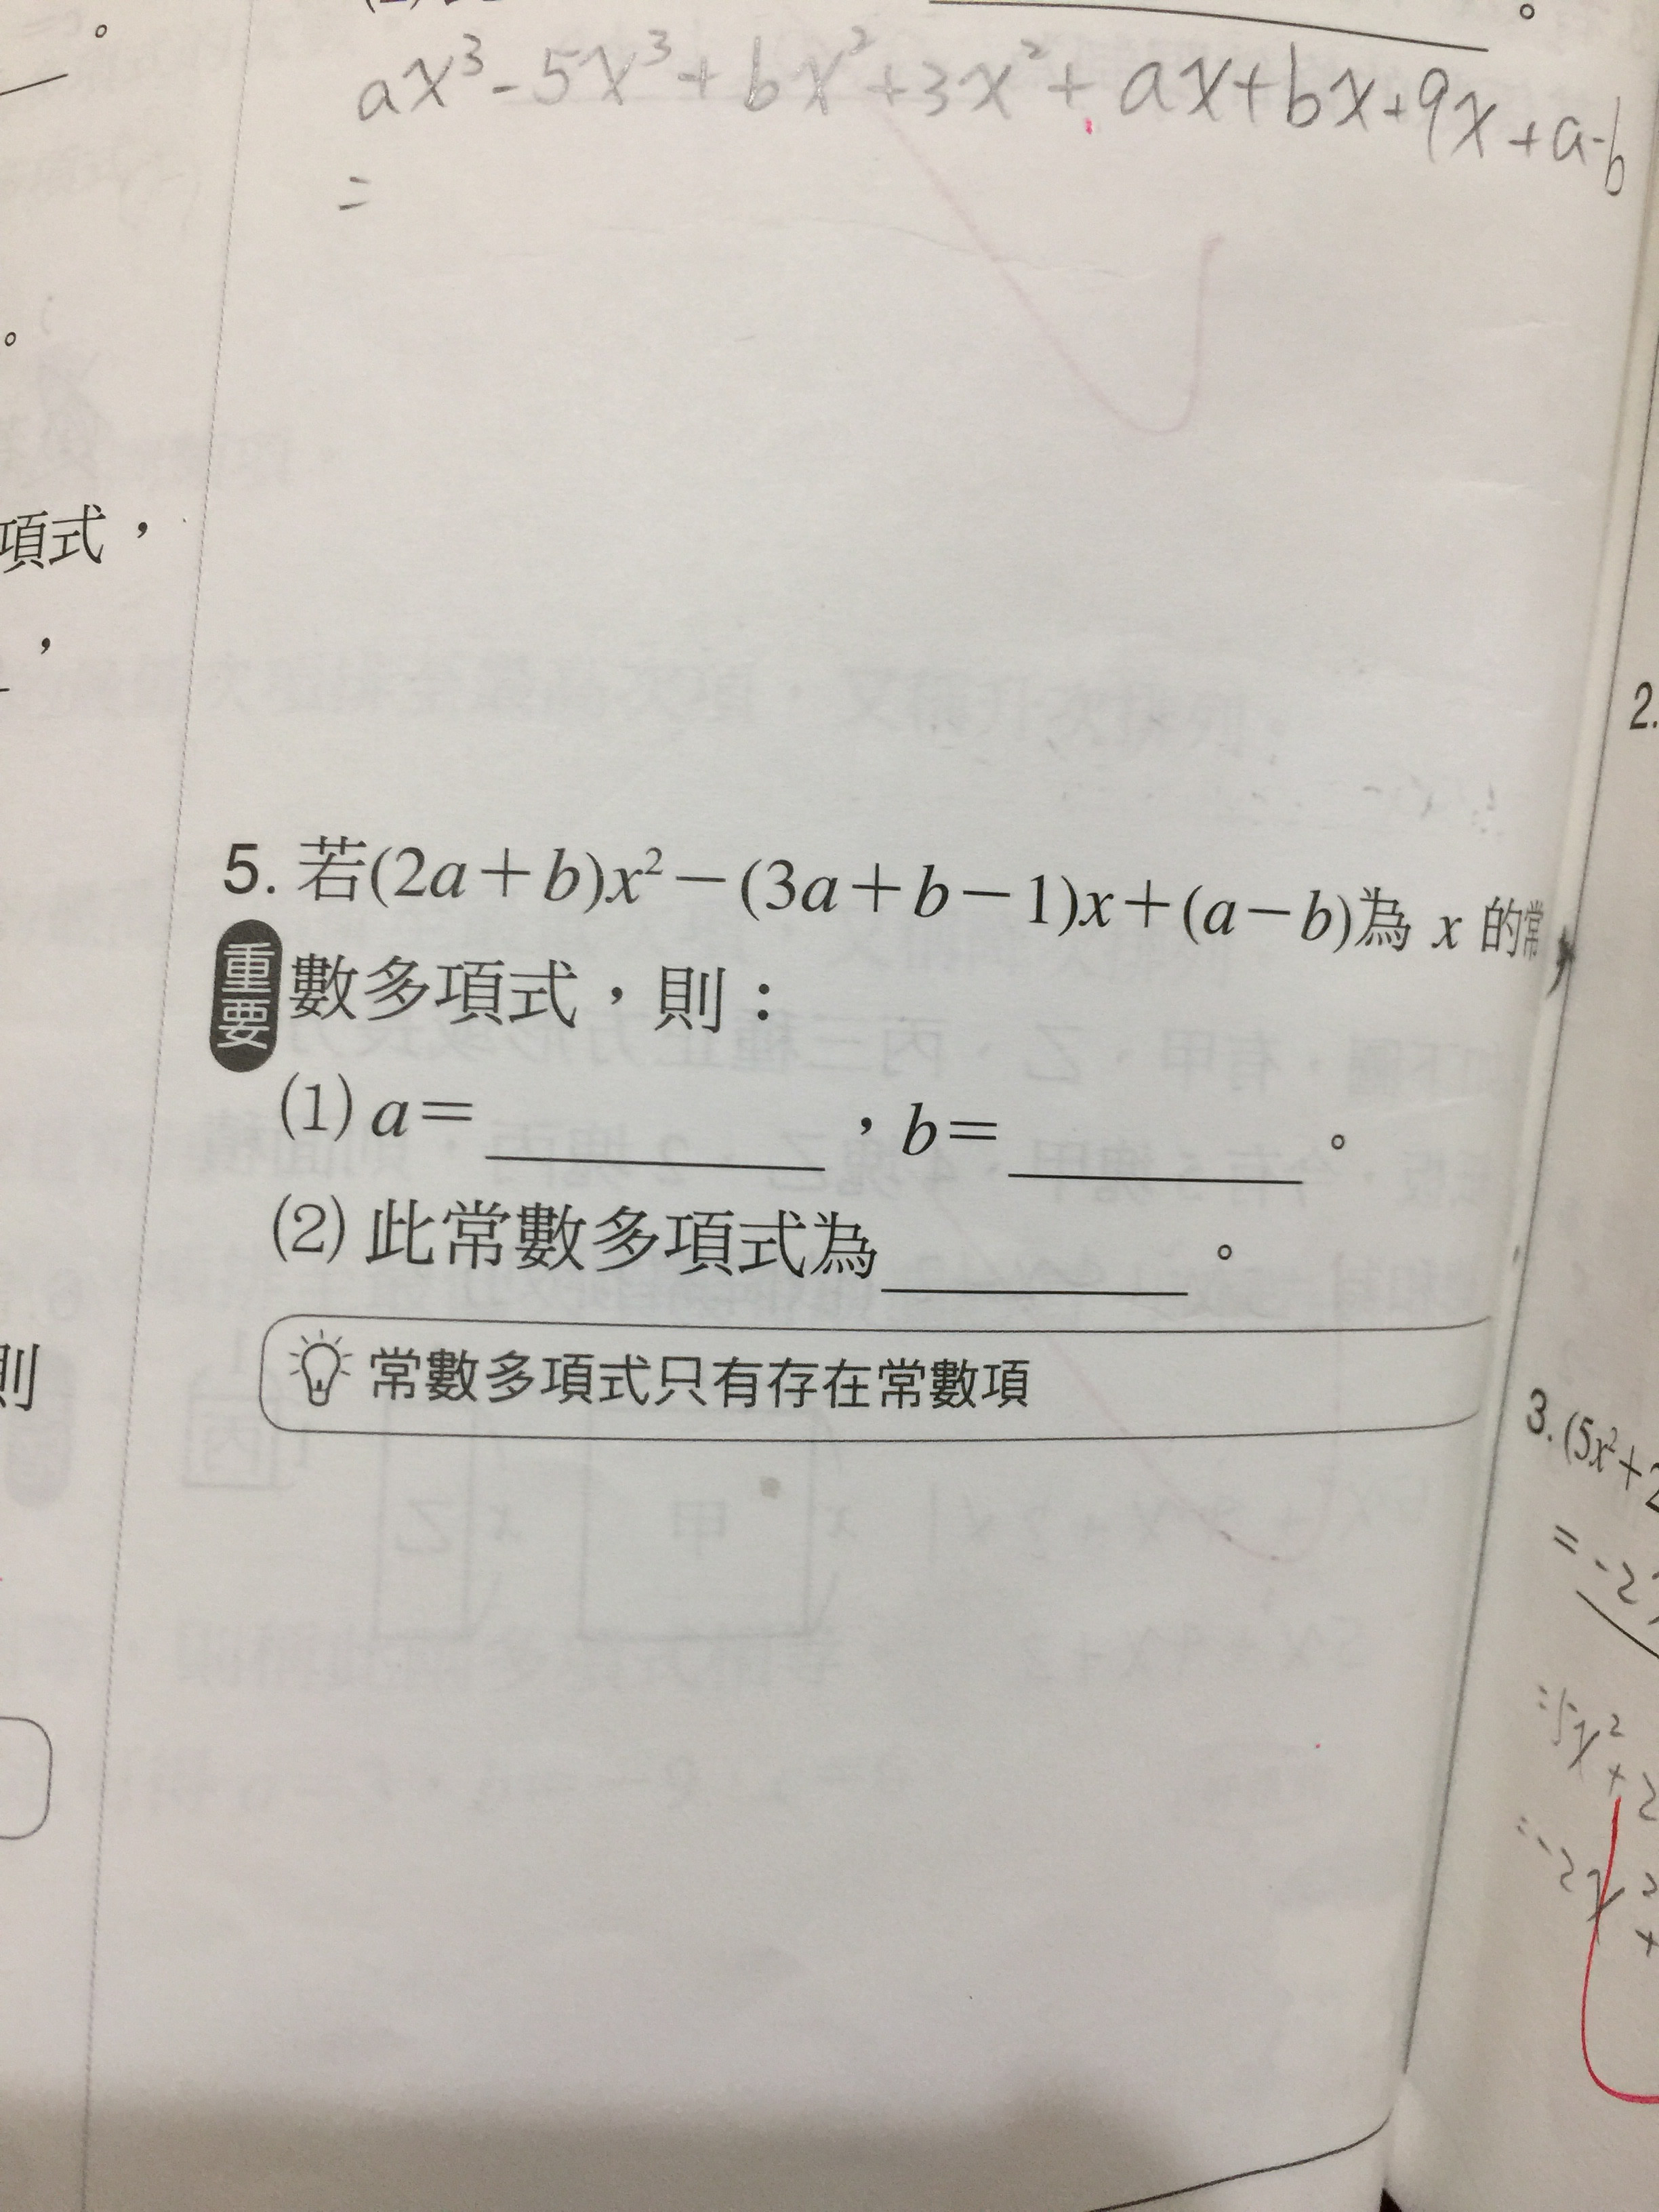 。
ax³-5x³+bx²+3x²+ax+bx+9x+a-b
=
。
項式，
，
5. 若(2a+b)x²-(3a+b-1)x+(a-b)為 x 的常
重要
數多項式，則：
(1) a=______，b=______。
(2) 此常數多項式為______。
常數多項式只有存在常數項
則
2.
3. (5x²+2
= -2